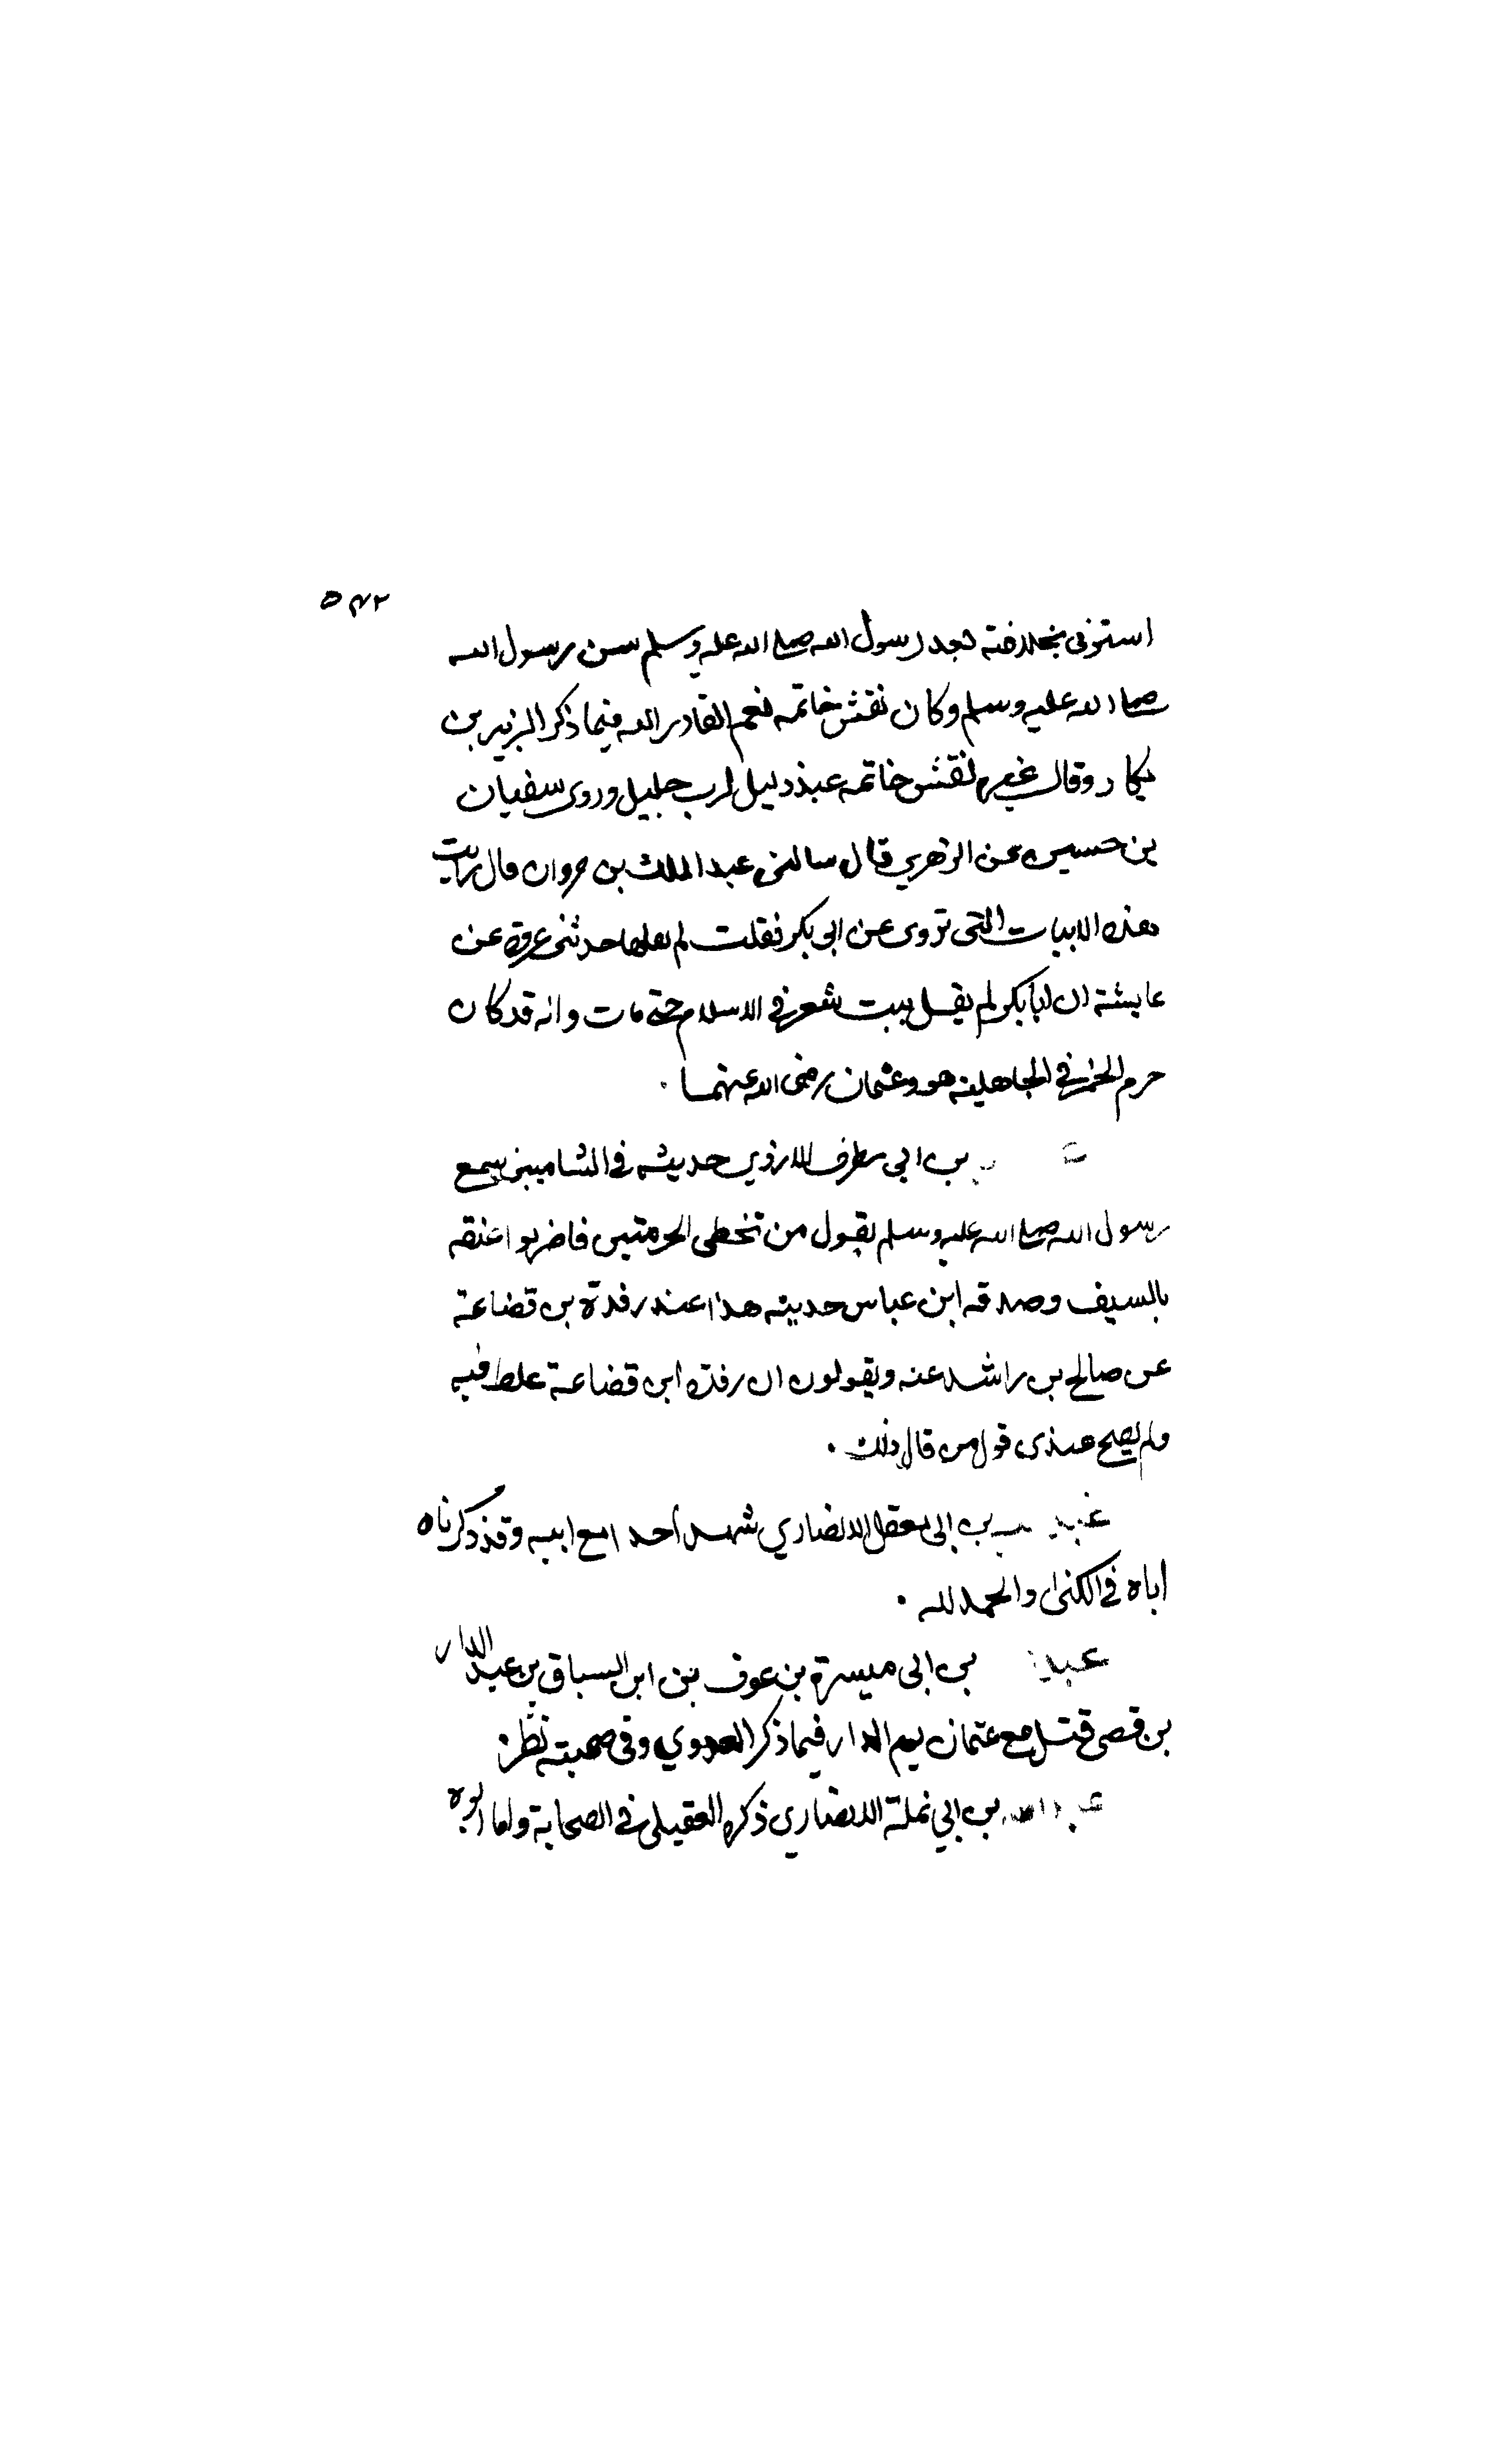 ٥٤٢
استوفى بخلافته بعد رسول الله صلى الله عليه وسلم سن رسول الله
صلى الله عليه وسلم وكان نقش خاتمه نعم القادر الله فيما ذكر الزبير بن
بكار وقال غيره نقش خاتمه عبد ذليل لرب جليل وروى سفيان
بن حسين عن الزهري قال سالنى عبد الملك بن مروان قال رايت
هذه الابيات التى تروى عن ابى بكر فقلت لم يقلها حدثنى عروة عن
عايشة ان ابا بكر لم يقل بيت شعر في الاسلام حتى مات وانه قد كان
حرم الخمر في الجاهلية هو وعثمان رضى الله عنهما .
بن ابي مطرف الازدي حديثه في الشاميين سمع
رسول الله صلى الله عليه وسلم يقول من تخطى الحرمتين فاضربوا عنقه
بالسيف وصدقه ابن عباس حديثه هذا عند رفدة بن قضاعة
عن صالح بن راشد عنه ويقولون ان رفده ابن قضاعة غلط فيه
ولم يصح عندى قول من قال ذلك .
بن ابى معقل الانصاري شهد أحدا مع ابيه وقد ذكرناه
اباه في الكنى والحمد لله .
عبد بن ابى ميسرة بن عوف بن ابن السباق بن عبد الدار
بن قصى قتل مع عثمان يوم الدار فيما ذكر العدوي وفى صحبته نظر
عبد الله بن ابي نملة الانصاري ذكره العقيلى في الصحابة واما ابوه